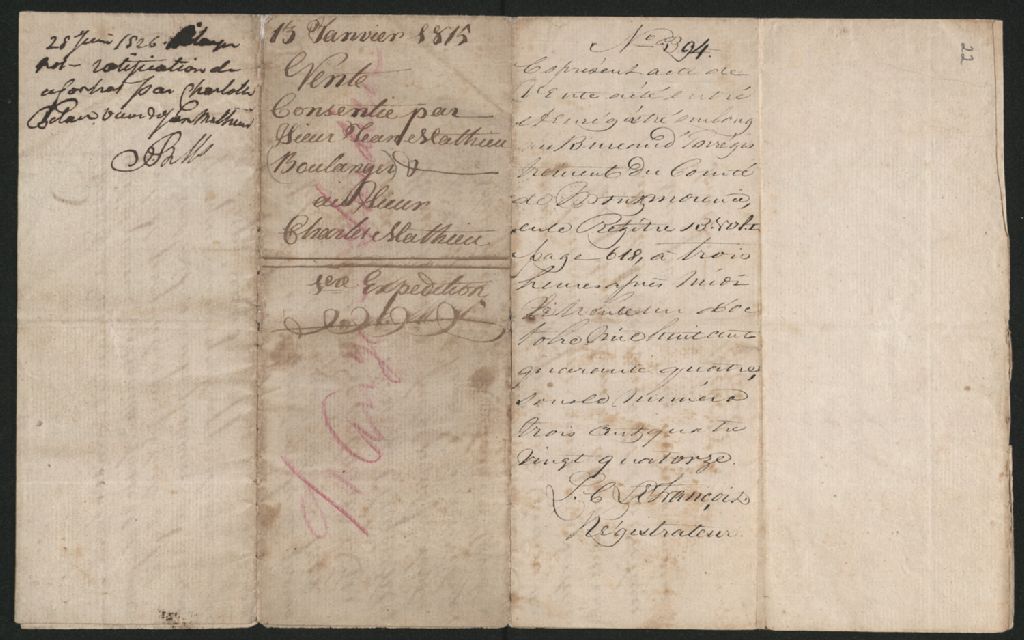 25 Juin 1826
ratification de
par Charlotte
Jean Mathieu
13 Janvier 1815
Vente
Consentie par
Sieur Jean Mathieu
Boulanger &
au Sieur
Charles Mathieu
1ere Expedition
No. 394.
Le présent acte de
Vente a été entré
et enrégistré au long
au Bureau d'Enrégis
trement du Comté
de Montmorency,
en le Régître B. Vol. 1
page 618, à trois
heures après midi
le trente un d'Oc
tobre mil huit cent
quarante quatre,
sous le numéro
trois cent quatre
vingt quatorze.
J. C. LeFrançois
Régistrateur
22